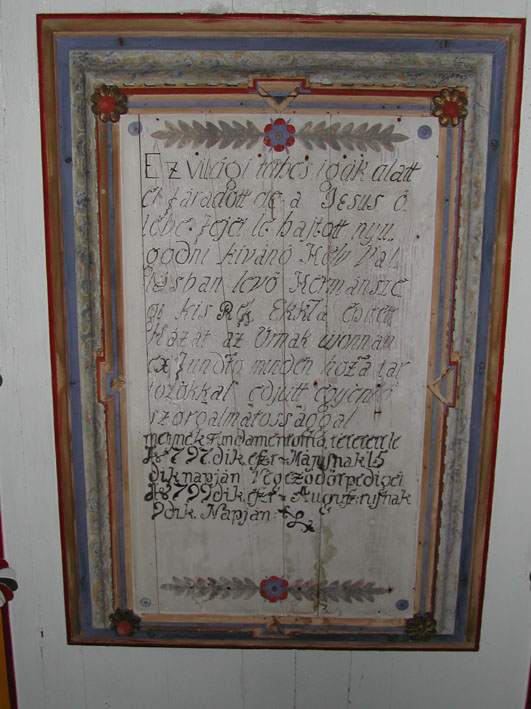 Ez világi terhes igák alatt
el fáradott de a Jesus ö
lébe fejét le hajtott nyu
godni kiváno Hely Val
lásban levö Hermánsze
gi kis Ref Ekkla épitett
Házat az Urnak uonnan
ex fundto minden hozzá tar
tozokkal edjütt egyenlö
szorgalmatossággal
mellynek Fundamentoma tétetett le
1797.dik eszt. Majusnak 15
dik napján Végezödött pedig el
1799dik eszt. Augustusnak
9dik Napján.